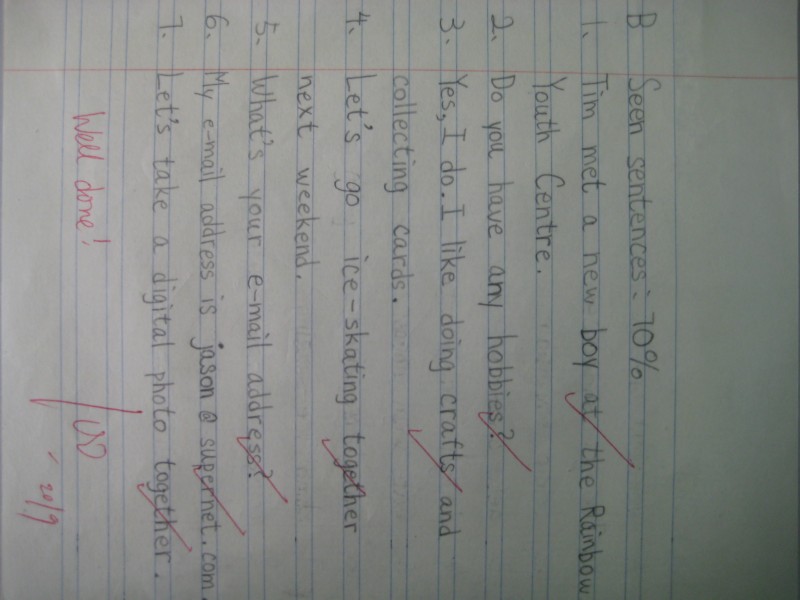 B Seen sentences: 70%
1. Tim met a new boy at the Rainbow
Youth Centre.
2. Do you have any hobbies?
3. Yes, I do. I like doing crafts and
collecting cards.
4. Let's go ice-skating together
next weekend.
5. What's your e-mail address?
6. My e-mail address is jason@supernet.com.
7. Let's take a digital photo together.
Well done!
100
20/9